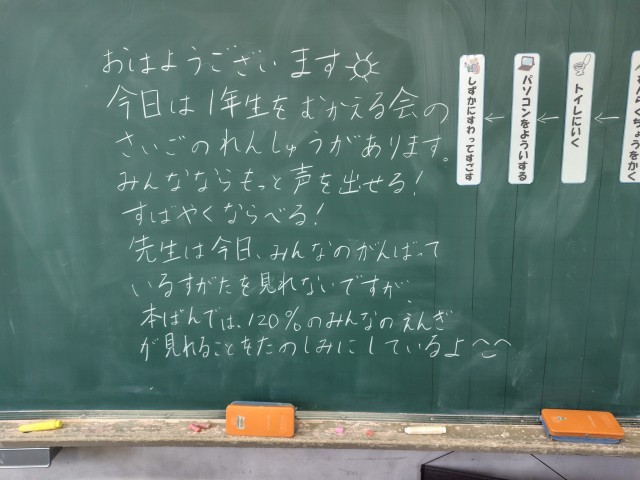 おはようございます☀
今日は1年生をむかえる会の
さいごのれんしゅうがあります。
みんなならもっと声を出せる!
すばやくならべる!
先生は今日、みんなのがんばって
いるすがたを見れないですが、
本ばんでは、120%のみんなのえんぎ
が見れることをたのしみにしているよ^‿^
トイレにいく
←
パソコンをよういする
←
しずかにすわってすごす